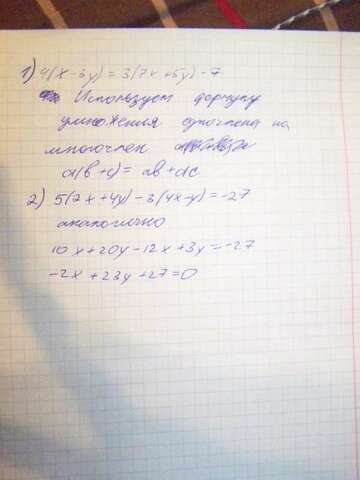 1) 4(x-3y)=3(7x+5y)-7
Используем формулу
умножения одночлена на
многочлен
a(b+c)=ab+ac
2) 5(2x+4y)-3(4x-y)=-27
аналогично
10x+20y-12x+3y=-27
-2x+23y+27=0